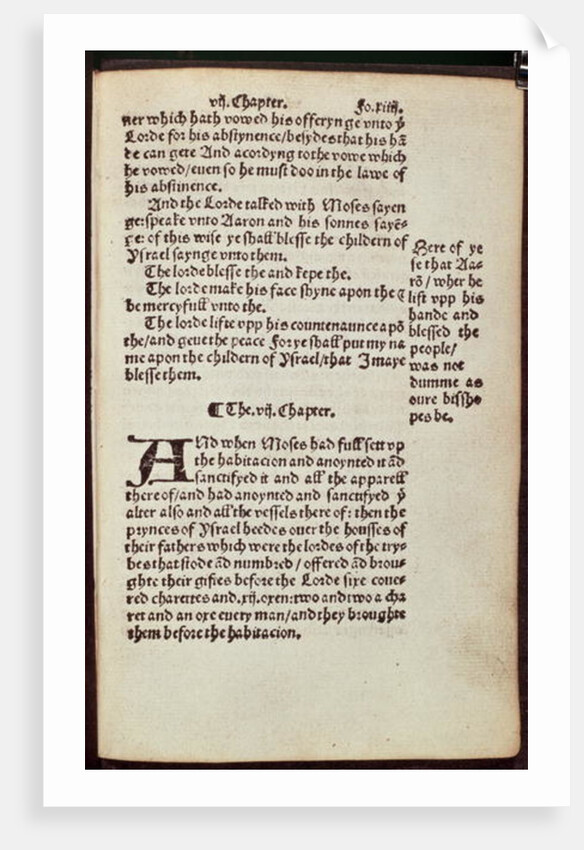 vij. Chapter. Fo.xiiij.
ner which hath vowed his offerynge vnto ẏ
Lorde for his abstynence/besydes that his hā
de can gete And acordyng to the vowe which
he vowed/euen so he must doo in the lawe of
his abstinence.
And the Lorde talked with Moses sayen
ge: speake vnto Aaron and his sonnes sayē⸗
ge: of this wise ye shall blesse the childern of
Ysrael saynge vnto them.
The lorde blesse the and kepe the.
The lorde make his face shyne apon the &
be mercyfull vnto the.
The lorde lifte vpp his countenaunce apō
the/and geue the peace For ye shall put my na
me apon the childern of Ysrael/that I maye
blesse them.
Here of ye
se that Aa⸗
rō/wher he
lift vpp his
hande and
blessed the
people/
was not
dumme as
oure bissho
pes be.
¶ The .vij. Chapter.
ANd when Moses had full sett vp
the habitacion and anoynted it ād
sanctifyed it and all the apparell
there of/and had anoynted and sanctifyed ẏ
alter also and all the vessels there of: then the
prynces of Ysrael heedes ouer the housses of
their fathers which were the lordes of the try⸗
bes that stode ād numbred/offered ād brou⸗
ghte their giftes before the Lorde sixe coue⸗
red charettes and .xij. oxen: two and two a cha
ret and an oxe euery man/and they broughte
them before the habitacion.